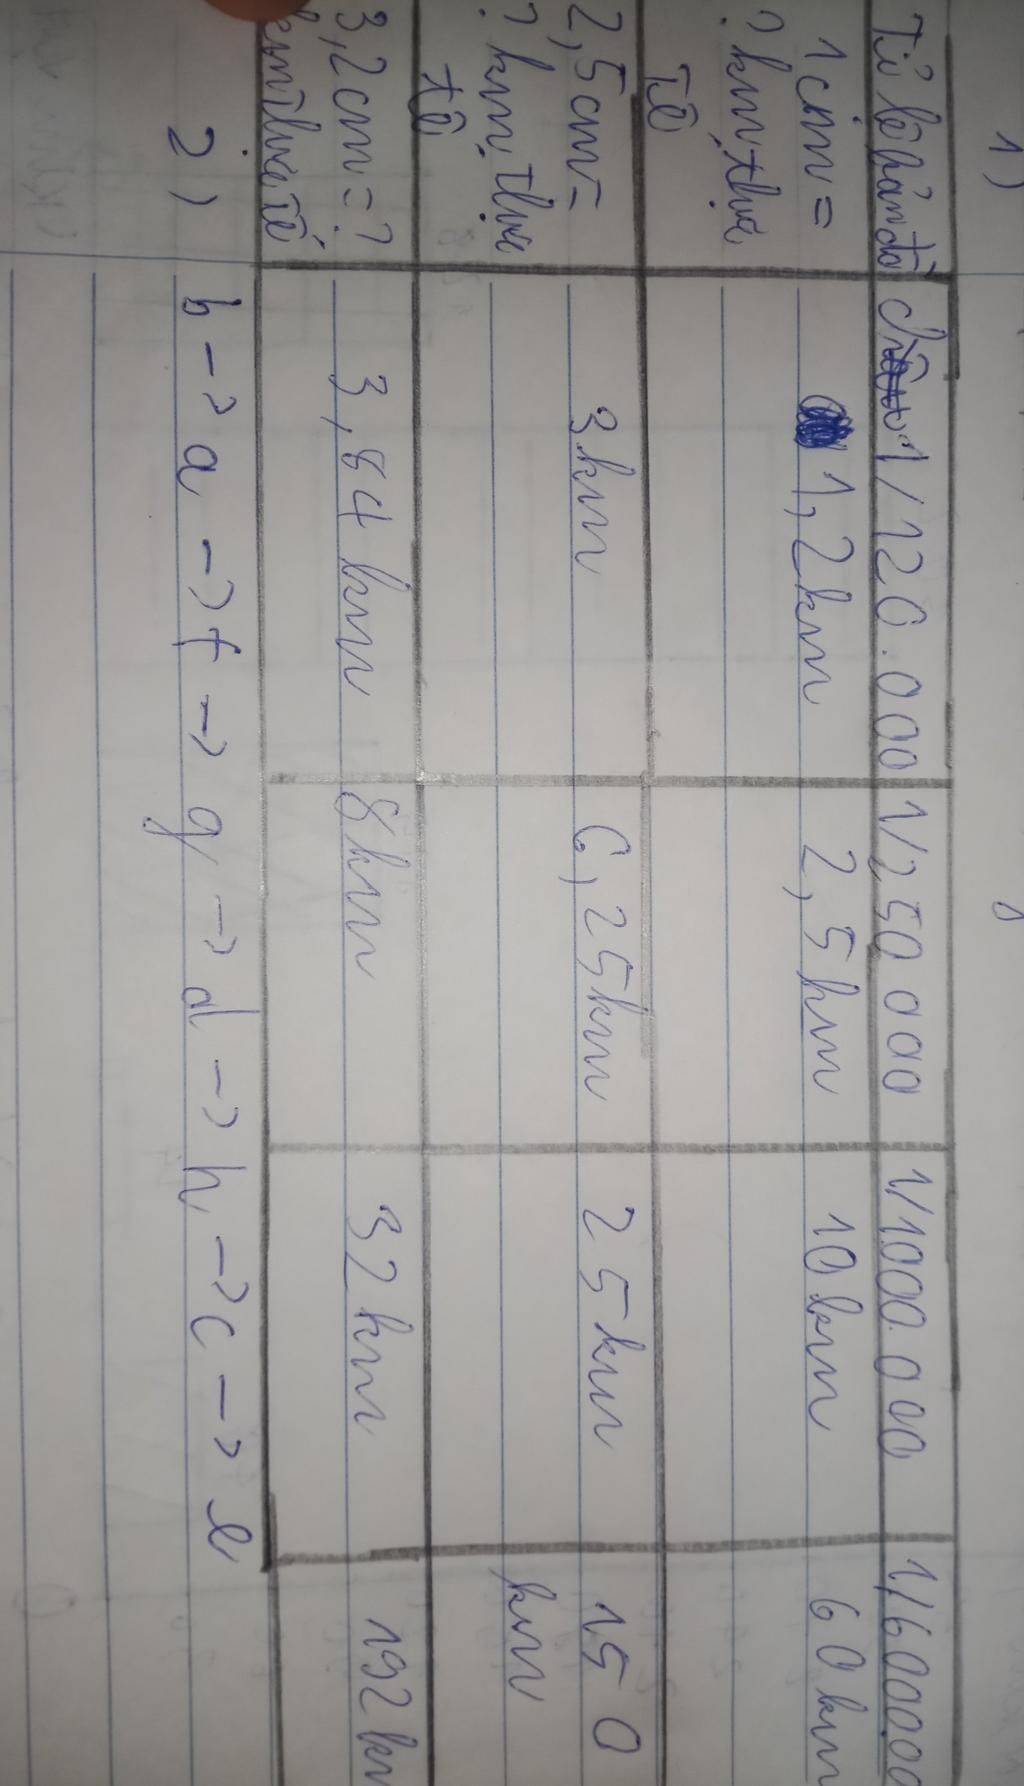 1)
Tỉ lệ bản đồ 1/120.000 1/250 000 1/1000.000 1/6000.00
1cm = 1,2km 2,5km 10km 60km
? km thực
Tế
2,5cm = 3km 6,25km 25km 150
? km thực km
tế
3,2cm = ? 3,84km 8km 32km 192km
km thực tế
2) b → a → f → g → d → h → c → e